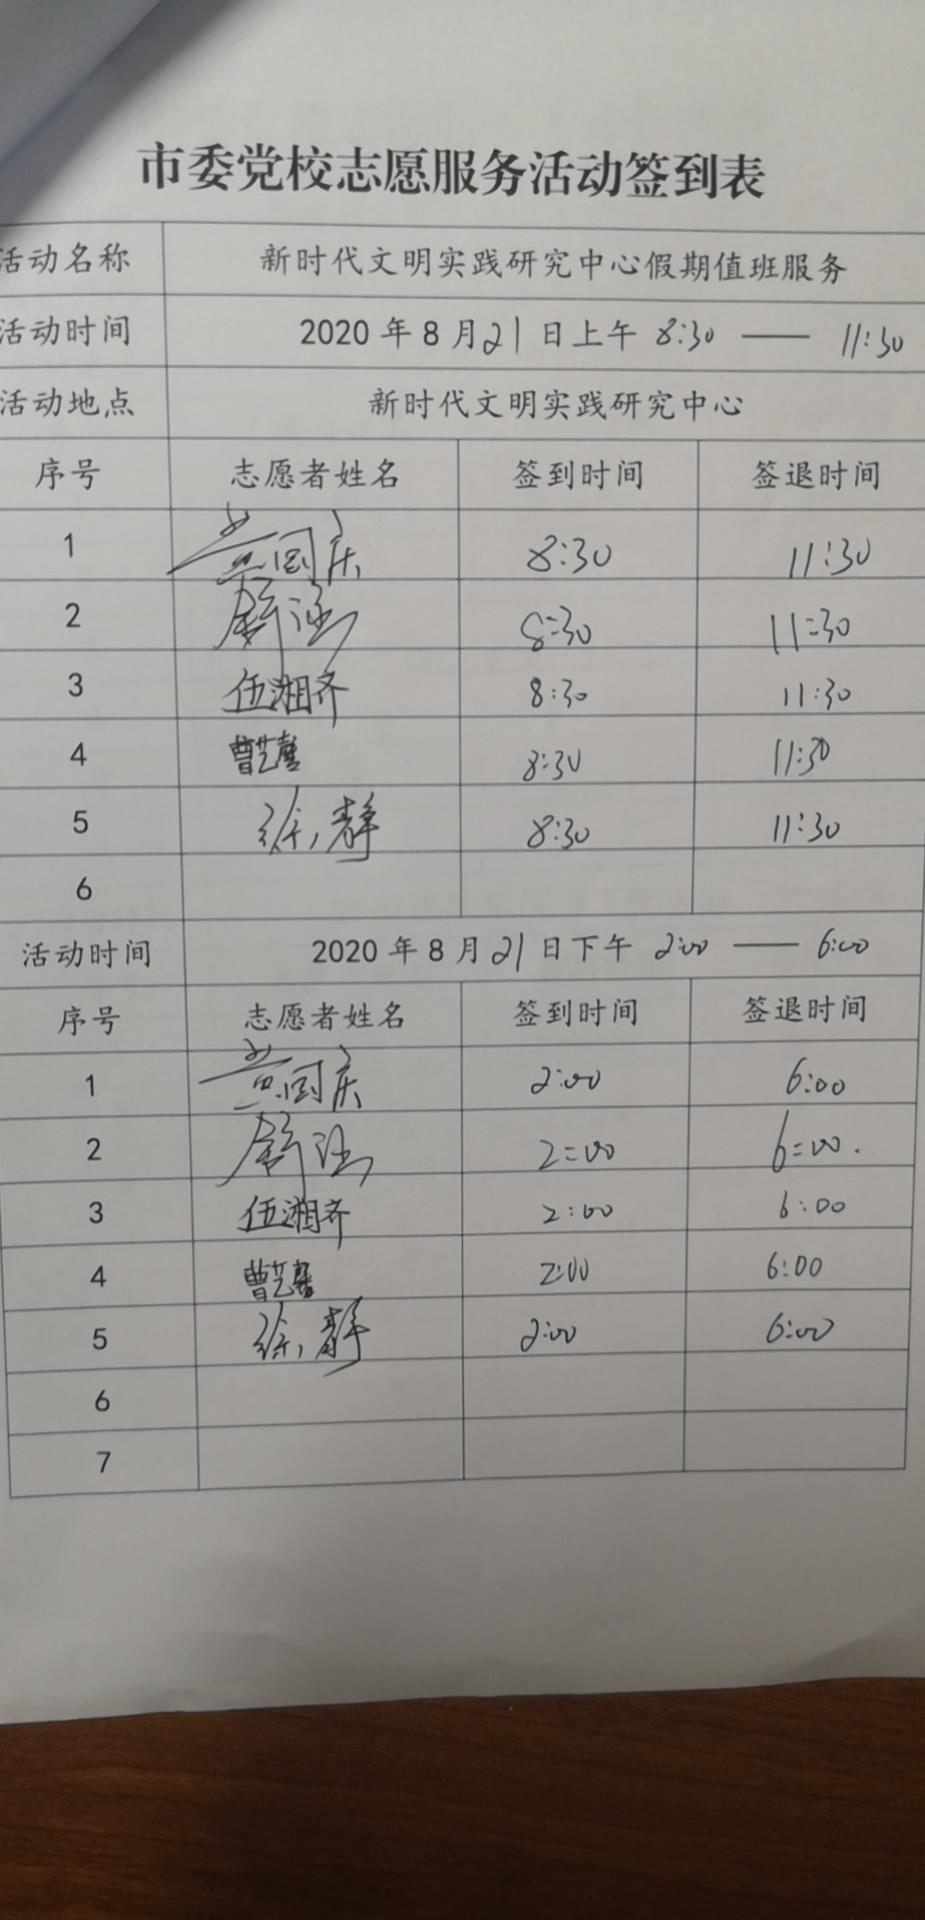 市委党校志愿服务活动签到表
活动名称 新时代文明实践研究中心假期值班服务
活动时间 2020年8月21日上午 8:30 —— 11:30
活动地点 新时代文明实践研究中心
序号 志愿者姓名 签到时间 签退时间
1 黄国庆 8:30 11:30
2 8:30 11:30
3 伍湘齐 8:30 11:30
4 曹艺馨 8:30 11:30
5 徐静 8:30 11:30
6
活动时间 2020年8月21日下午 2:00 —— 6:00
序号 志愿者姓名 签到时间 签退时间
1 黄国庆 2:00 6:00
2 2:00 6:00.
3 伍湘齐 2:00 6:00
4 曹艺馨 2:00 6:00
5 徐静 2:00 6:00
6
7